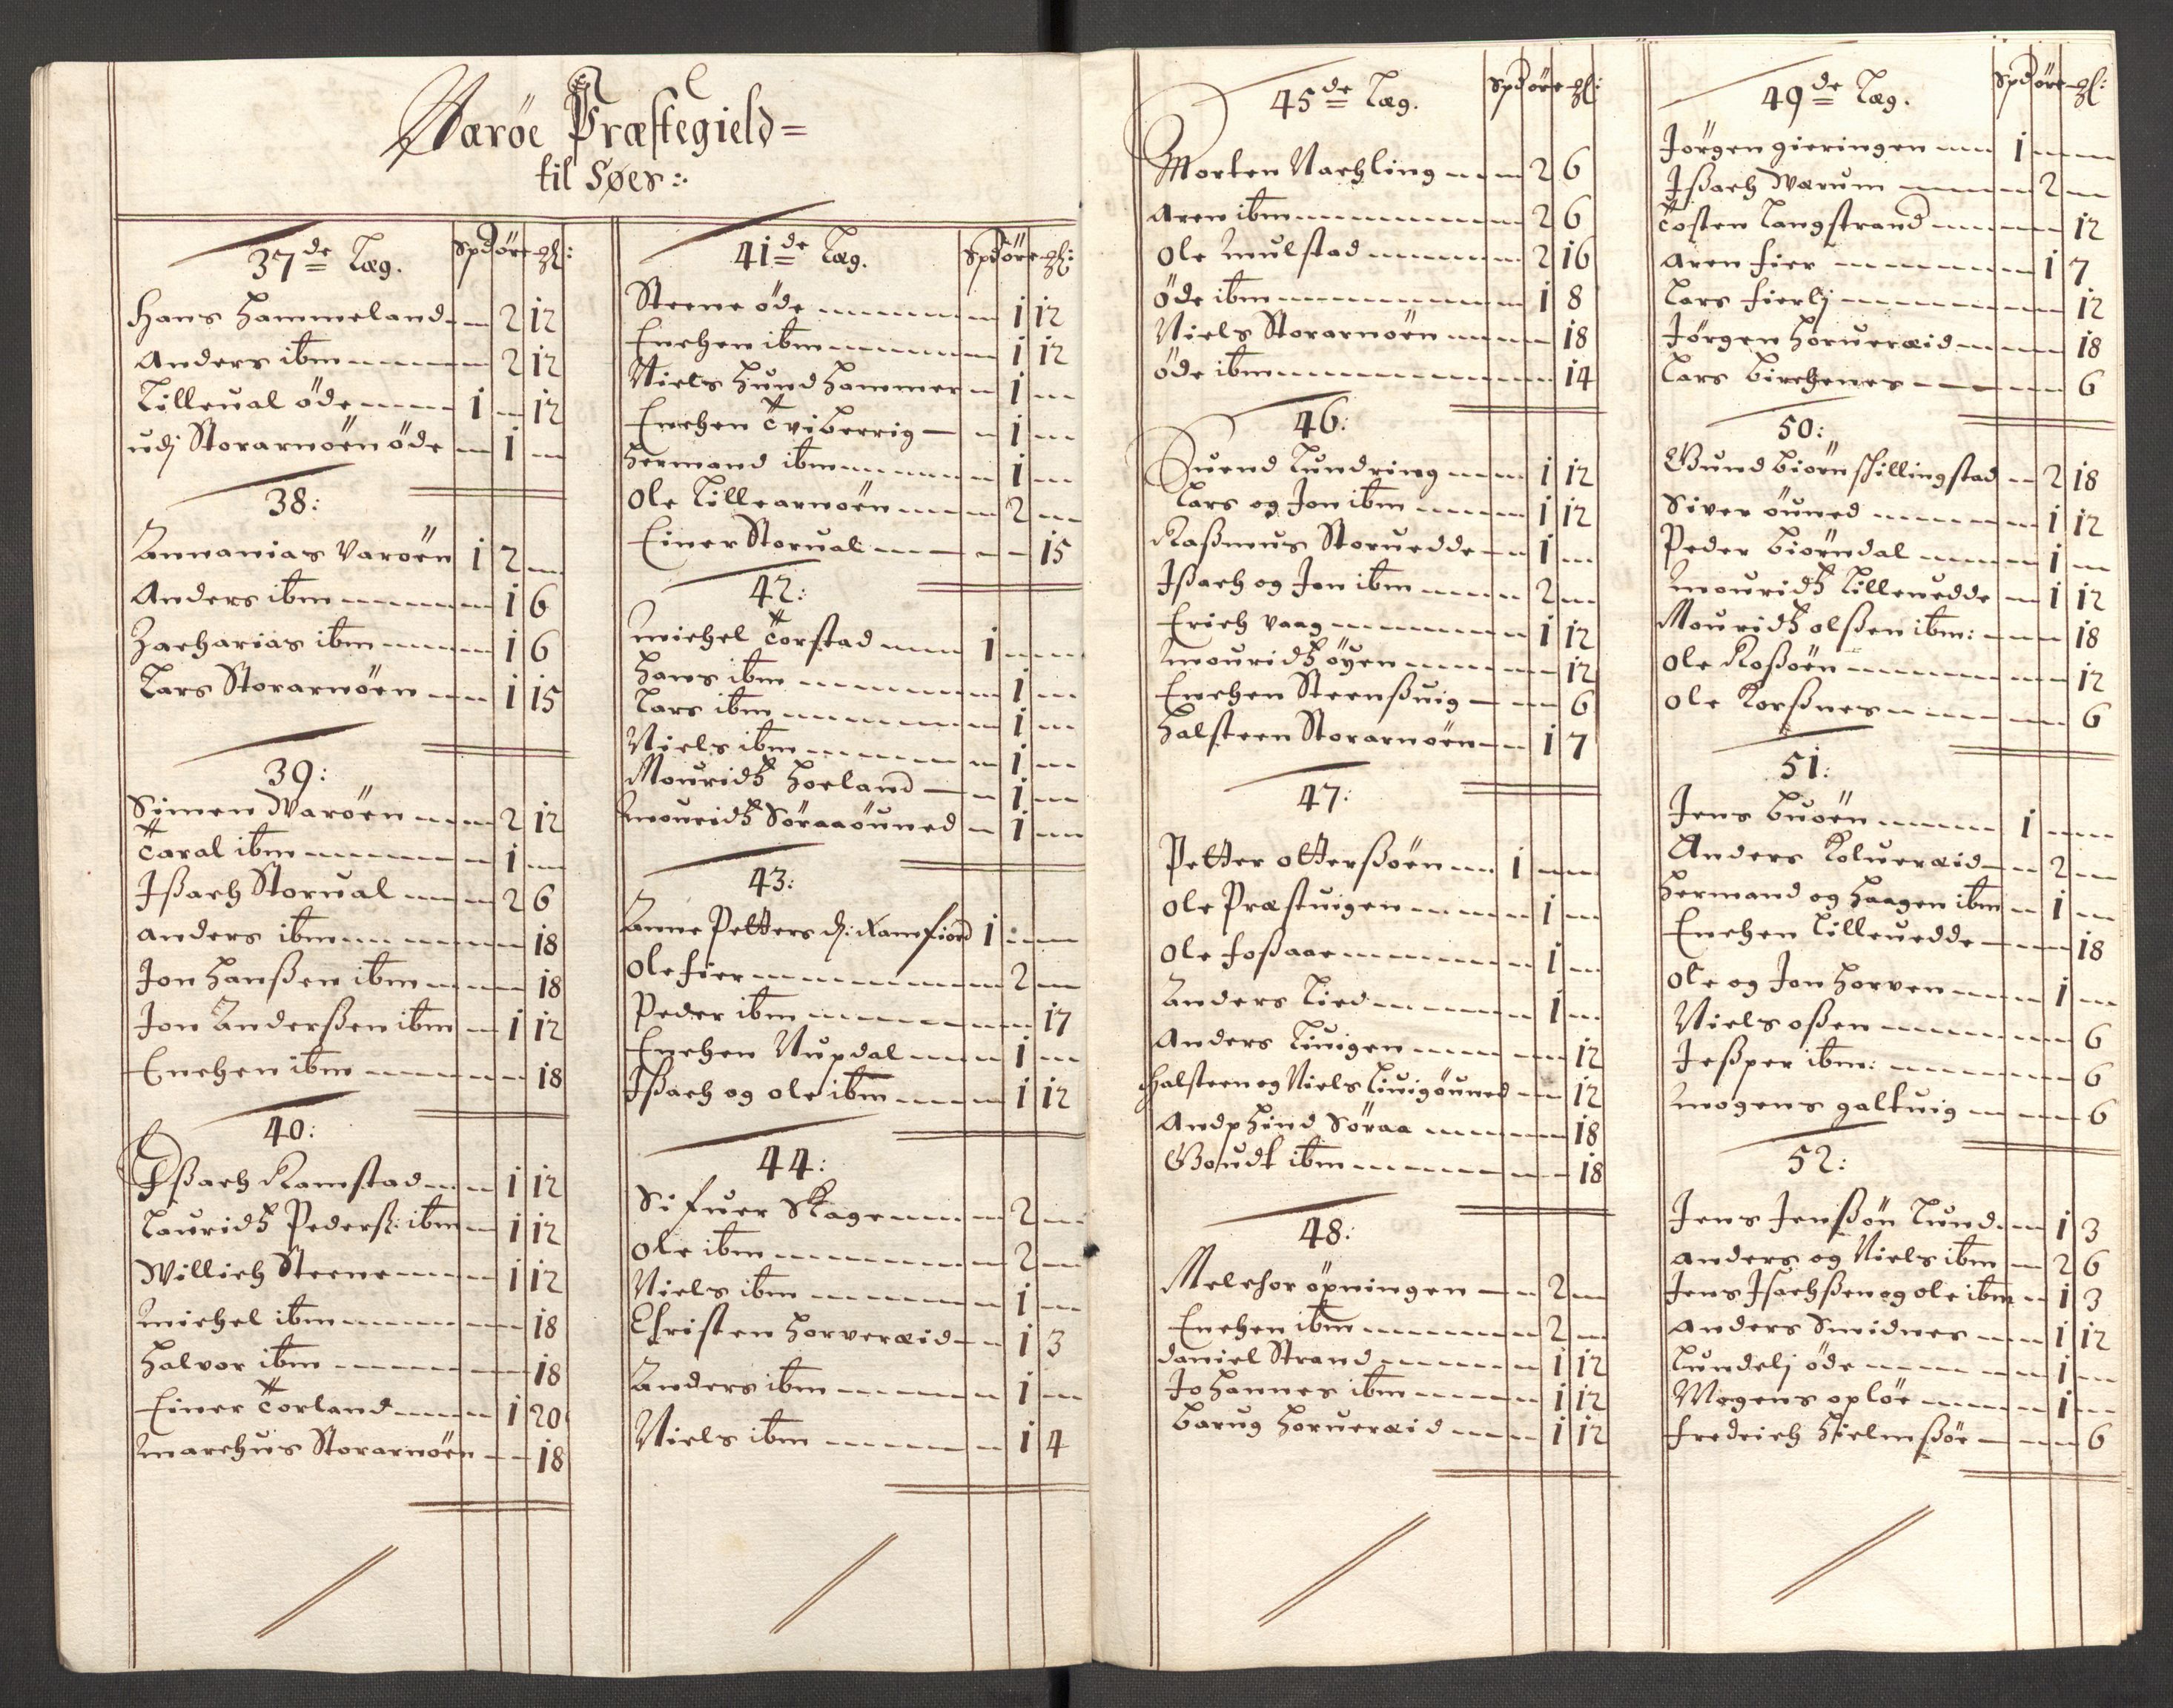 Værøe Præstegield=
til Søes:
37de Læg. Spd öre ʒl:
Hans Hammeland 2 12
Anders ibm 2 12
Lilleual öde 1 12
udj Storarnöen öde 1
38:
Annanias Varöen 1 2
Anders ibm 1 6
Zacharias ibm 1 6
Lars Storarnöen 1 15
39:
Simen Waröen 2 12
Taral ibm 1
Jßach Storual 2 6
Anders ibm 18
Jon Hanßen ibm 18
Jon Anderßen ibm 1 12
Enchen ibm 18
40:
Jßach Ramstad 1 12
Lauridtz Pederß: ibm 1 12
Willich Steene 1 12
Michel ibm 18
Halvor ibm 18
Einer Torland 1 20
Marchus Storarnöen 18
41de Læg. Spd öre ʒl:
Steene öde 1 12
Enchen ibm 1 12
Niels Hundhammer 1
Enchen Tviberrig 1
Hermand ibm 1
Ole Lillearnöen 2
Einer Storual 15
42:
Michel Torstad 1
Hans ibm 1
Lars ibm 1
Niels ibm 1
Mouridtz Horland 1
Mouridtz Söraaöuned 1
43:
Anne Petters d: Ramfiord 1
Ole fier 2
Peder ibm 17
Enchen Nupdal 1
Jßach og Ole ibm 1 12
44:
Sifuer Skage 2
Ole ibm 2
Niels ibm 1
Christen Horveræid 1 3
Anders ibm 1
Niels ibm 1 4
45de Læg. Spd öre ʒl:
Morten Nachling 2 6
Aren ibm 2 6
Ole Mulstad 2 16
öde ibm 1 8
Niels Storarnöen 18
öde ibm 14
46:
Suend Lundring 1 12
Lars og Jon ibm 1 12
Raßmus Storuedde 1
Jßach og Jon ibm 2
Erich Vaag 1 12
Mouridtz öyen 12
Enchen Steenßuig 6
Halsteen Storarnöen 1 7
47:
Petter Otterßöen 1
Ole Præstuigen 1
Ole foßaae 1
Anders Lied 1
Anders Liuigen 12
Halsteen og Niels Liuigöuned 12
Andphind Söraa 18
Goudt ibm 18
48:
Melchor öpningen 2
Enchen ibm 2
Daniel Strand 1 12
Johannes ibm 1 12
Barug Horueræid 1 12
49de Læg. Spd öre ʒl:
Jörgen gieringen 1
Jßach Wærum 2
Tosten Langstrand 12
Aren fier 1 7
Lars fierlj 12
Jörgen Horueræid 18
Lars Birchenes 6
50:
Gundbiörn skillingstad 2 18
Siver öuned 1 12
Peder Biörndal 1
Mouridtz Lilleuedde 1 12
Mouridtz olßen ibm: 18
Ole Roßöen 12
Ole Korßnes 6
51:
Jens Buöen 1
Anders Kolueræid 2
Hermand og Haagen ibm 1
Enchen Lilleuedde 18
Ole og Jon Horven 1
Niels oßen 6
Jeßper ibm: 6
Mogens galtuig 6
52:
Jens Jenßön Lund 1 3
Anders og Niels ibm 2 6
Jens Jsachßen og Ole ibm 1 3
Anders Smidnes 1 12
Lundelj öde 1
Mogens oplöe 1
Fredrich Hielmßöe 6